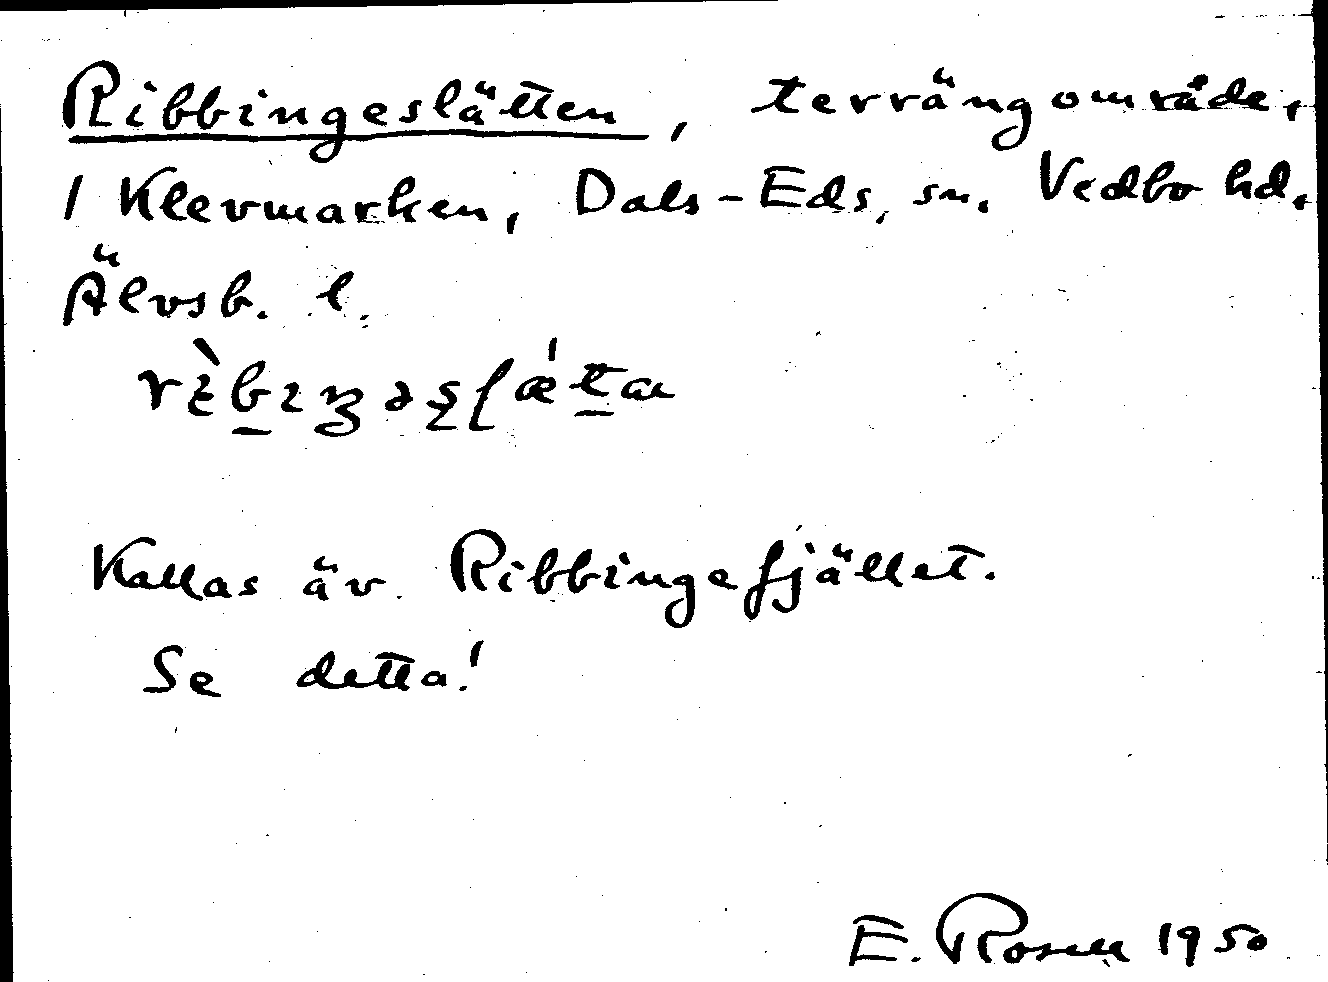 Ribbingeslätten, terrängområde,
1 Klevmarken, Dals-Eds, sn. Vedbo hd.
Älvsb. l.
Kallas äv. Ribbingefjället.
Se detta!
E. Rosell 1950